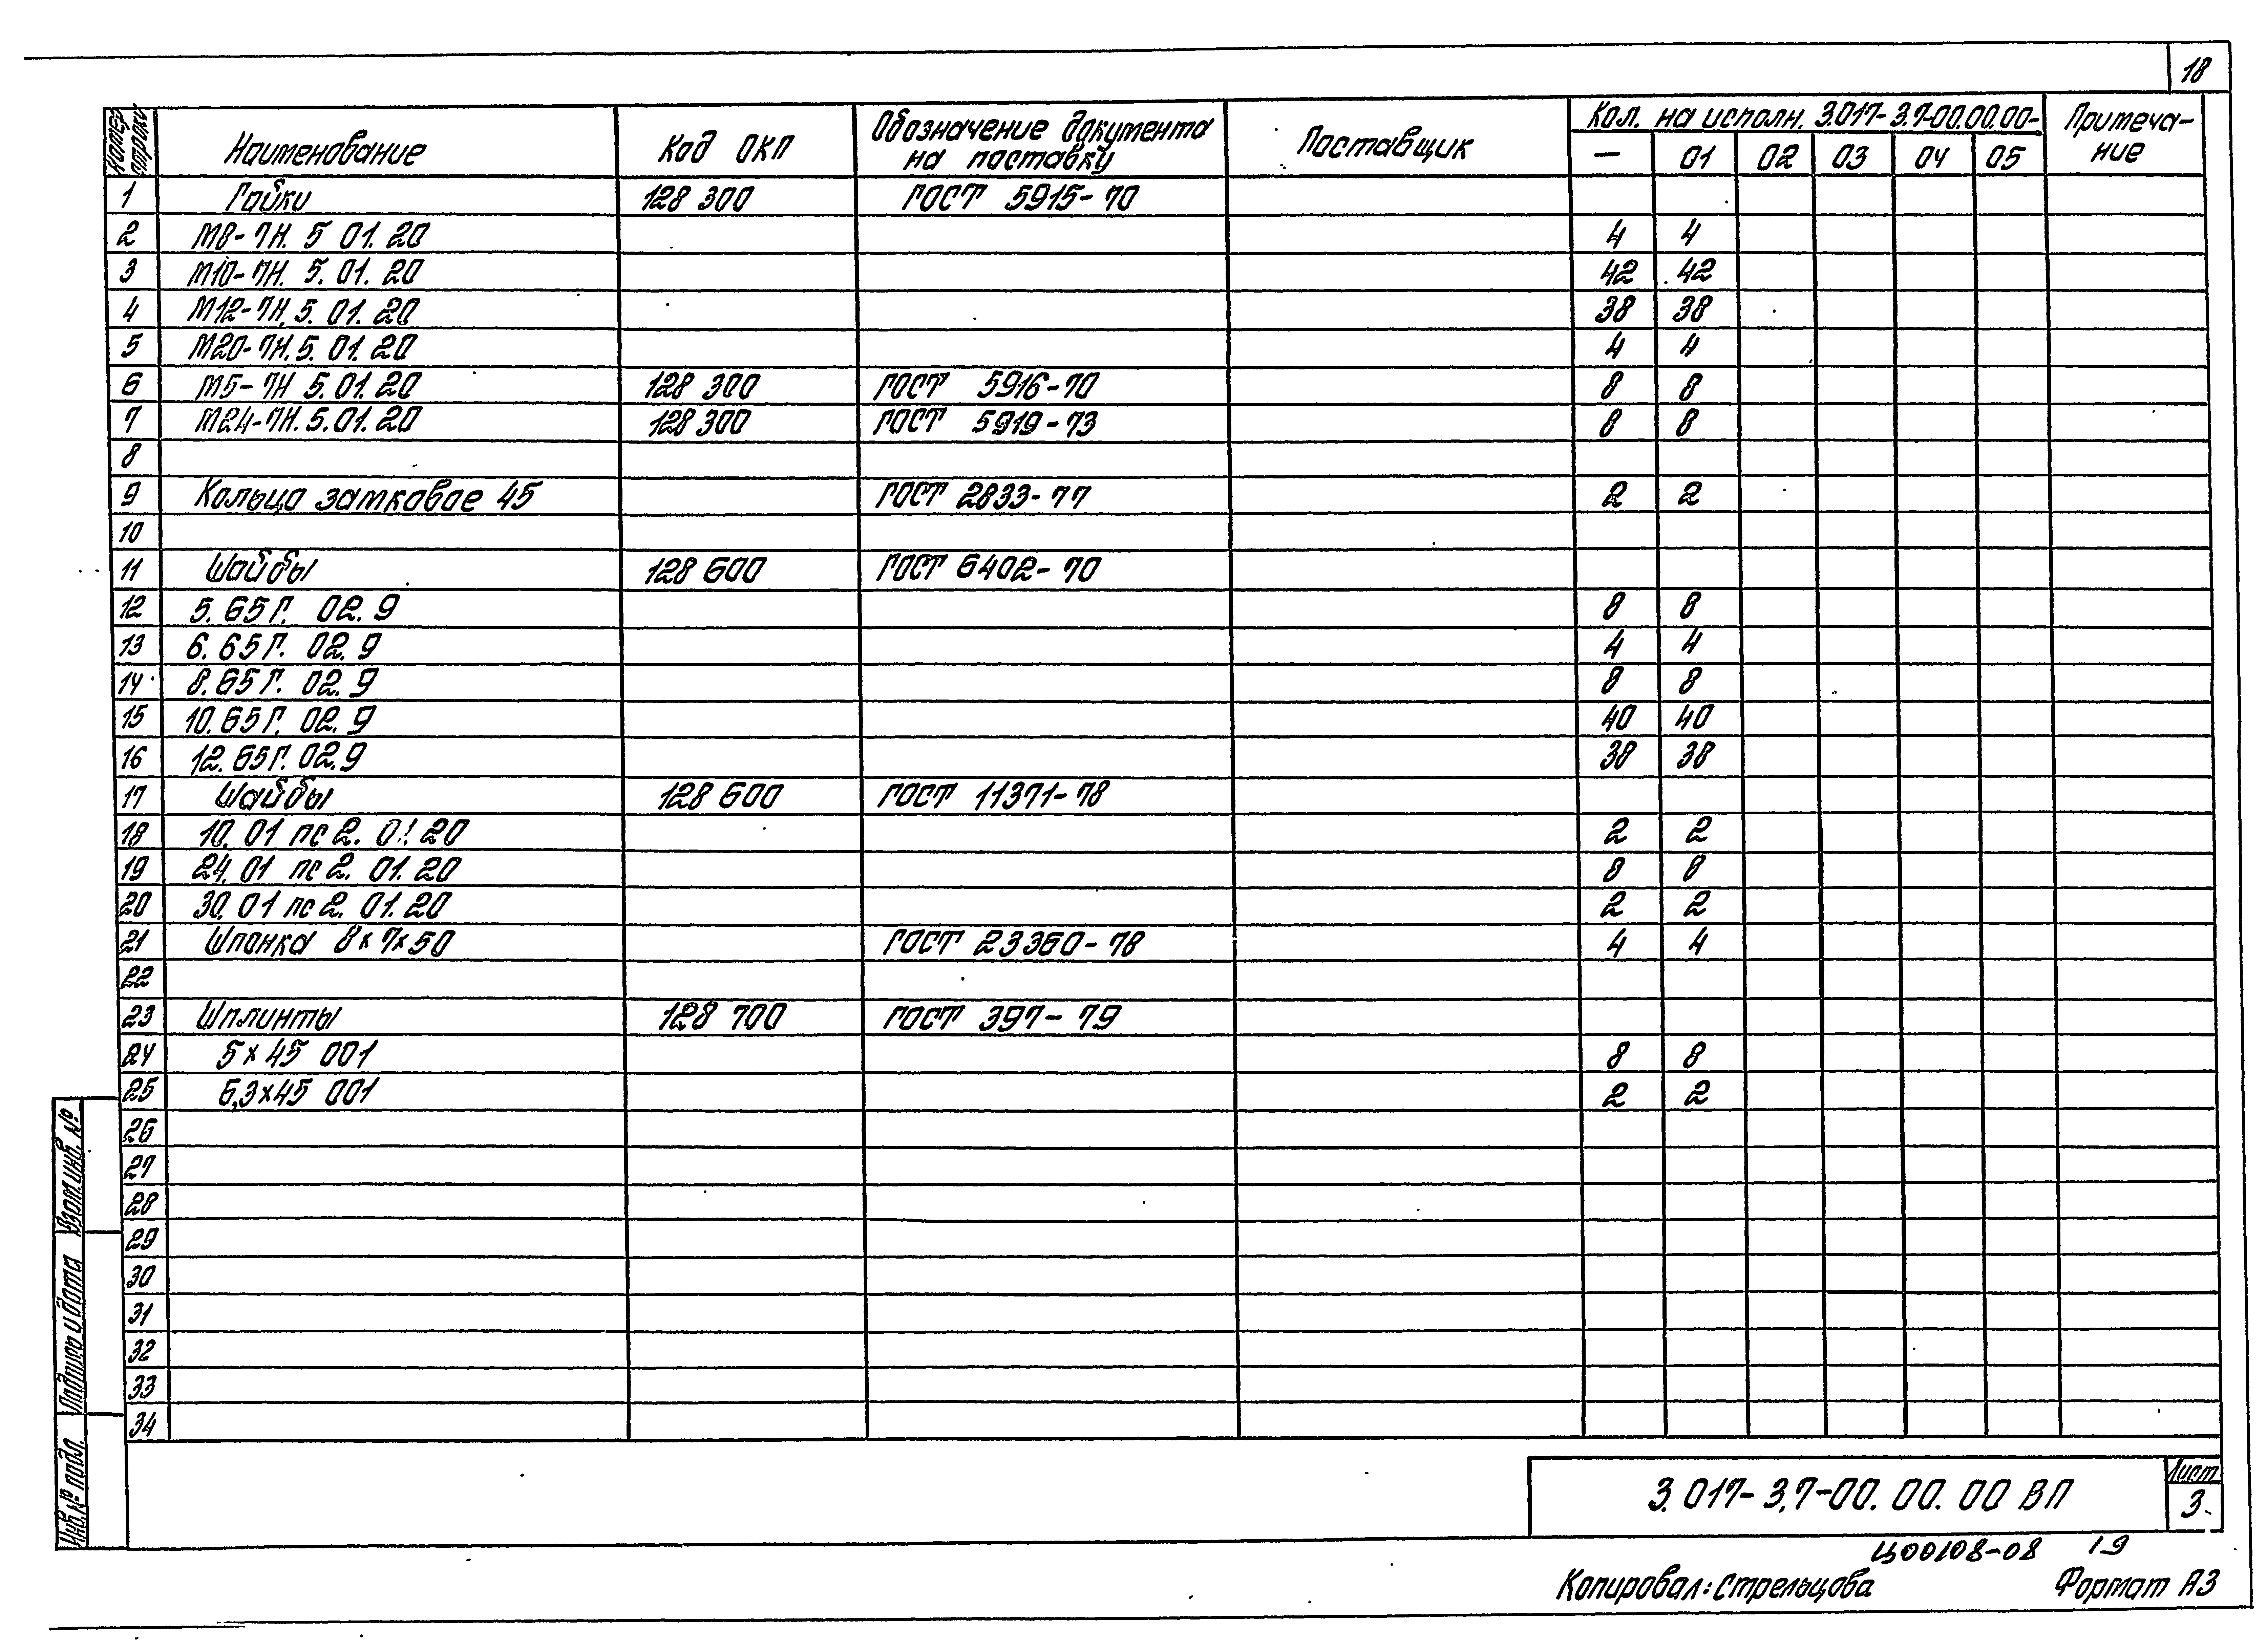 18
Номер строки Наименование Код ОКП Обозначение документа на поставку Поставщик Кол. на исполн. 3.017-3.7-00.00.00- Примеча-ние
— 01 02 03 04 05
1 Гайки 128 300 ГОСТ 5915-70
2 М8-7Н. 5 01. 20 4 4
3 М10-7Н. 5. 01. 20 42 42
4 М12-7Н. 5. 01. 20 38 38
5 М20-7Н. 5. 01. 20 4 4
6 М5-7Н 5.01.20 128 300 ГОСТ 5916-70 8 8
7 М24-7Н. 5.01.20 128 300 ГОСТ 5919-73 8 8
8
9 Кольцо затковое 45 ГОСТ 2833-77 2 2
10
11 Шайбы 128 600 ГОСТ 6402-70
12 5. 65Г. 02. 9 8 8
13 6. 65Г. 02. 9 4 4
14 8. 65Г. 02. 9 8 8
15 10. 65Г. 02. 9 40 40
16 12. 65Г. 02. 9 38 38
17 Шайбы 128 600 ГОСТ 11371-78
18 10. 01 пс 2. 01. 20 2 2
19 24. 01 пс 2. 01. 20 8 8
20 30. 01 пс 2. 01. 20 2 2
21 Шпонка 8х7х50 ГОСТ 23360-78 4 4
22
23 Шплинты 128 700 ГОСТ 397-79
24 5х45 001 8 8
25 6,3х45 001 2 2
26
27
28
29
30
31
32
33
34
Взам. инв. №
Подпись и дата
Инв. № подл.
3.017-3.7-00.00.00 ВП
Лист
3
Ц00108-08 19
Копировал: Стрельцова Формат А3